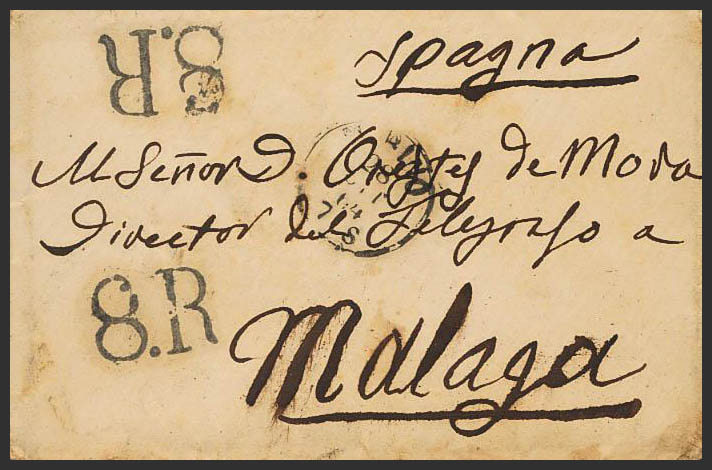 8.R
Spagna
Al Señor D. Orestes de Mora
Director del Telegrafo a
8.R
Malaga